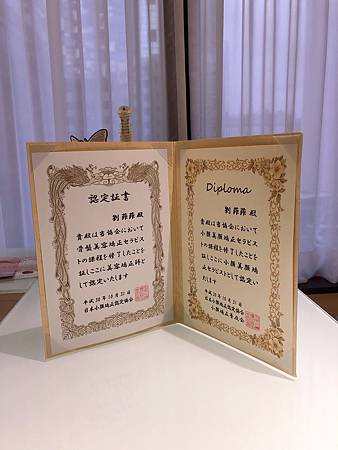 認定証書
劉菲菲 殿
貴殿は当協会において
骨盤美容矯正セラピス
トの課程を修了したことを
証しここに美容矯正師と
して認定いたします
平成30年10月31日
日本小顔矯正認定協会
Diploma
劉菲菲 殿
貴殿は当協会において
小顔美顔矯正セラピスト
の課程を修了したことを
証しここに小顔美顔矯
正セラピストとして認定いた
します
平成30年10月31日
日本小顔矯正認定協会